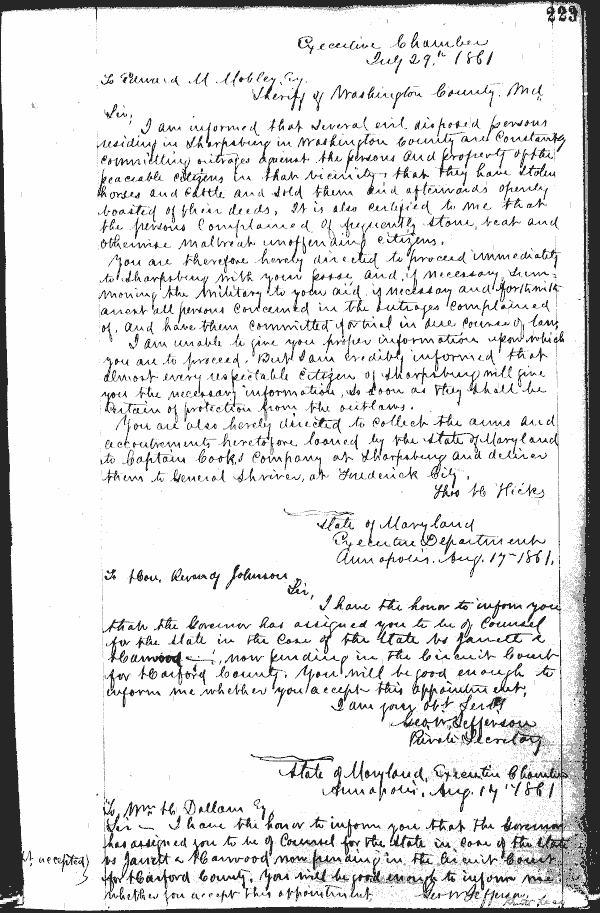 223
Executive Chamber
July 29th 1861
To Edward M. Mobley, Esq.
Sheriff of Washington County, Md.
Sir,
I am informed that several evil disposed persons
residing in Sharpsburg in Washington County are constantly
committing outrages against the persons and property of the
peaceable citizens in that vicinity, that they have stolen
horses and cattle and sold them and afterwards openly
boasted of their deeds. It is also certified to me that
the persons complained of frequently stone, beat and
otherwise maltreat unoffending citizens.
You are therefore hereby directed to proceed immediately
to Sharpsburg with your posse and, if necessary, sum-
moning the military to your aid, if necessary and forthwith
arrest all persons concerned in the outrages complained
of, and have them committed for trial in due course of law.
I am unable to give you proper information upon which
you are to proceed. But I am credibly informed that
almost every respectable citizen of Sharpsburg will give
you the necessary information, so soon as they shall be
certain of protection from the outlaws.
You are also hereby directed to collect the arms and
accoutrements heretofore loaned by the State of Maryland
to Captain Cook's Company at Sharpsburg and deliver
them to General Shriver, at Frederick City.
Thos H Hicks
State of Maryland
Executive Department
Annapolis, Aug. 17 1861.
To Hon. Reverdy Johnson
Sir,
I have the honor to inform you
that the Governor has assigned you to be of Counsel
for the State in the Case of the State vs Jarrett &
Harwood, now pending in the Circuit Court
for Harford County. You will be good enough to
inform me whether you accept this appointment.
I am your obt Servt
Geo. W. Jefferson
Private Secretary
State of Maryland, Executive Chamber
Annapolis, Aug. 17 1861
To Wm H Dallam Esq
Sir — I have the honor to inform you that the Governor
has assigned you to be of Counsel for the State in case of the State
accepted) vs Jarrett & Harwood now pending in the Circuit Court
for Harford County. You will be good enough to inform me
whether you accept this appointment Geo W Jefferson